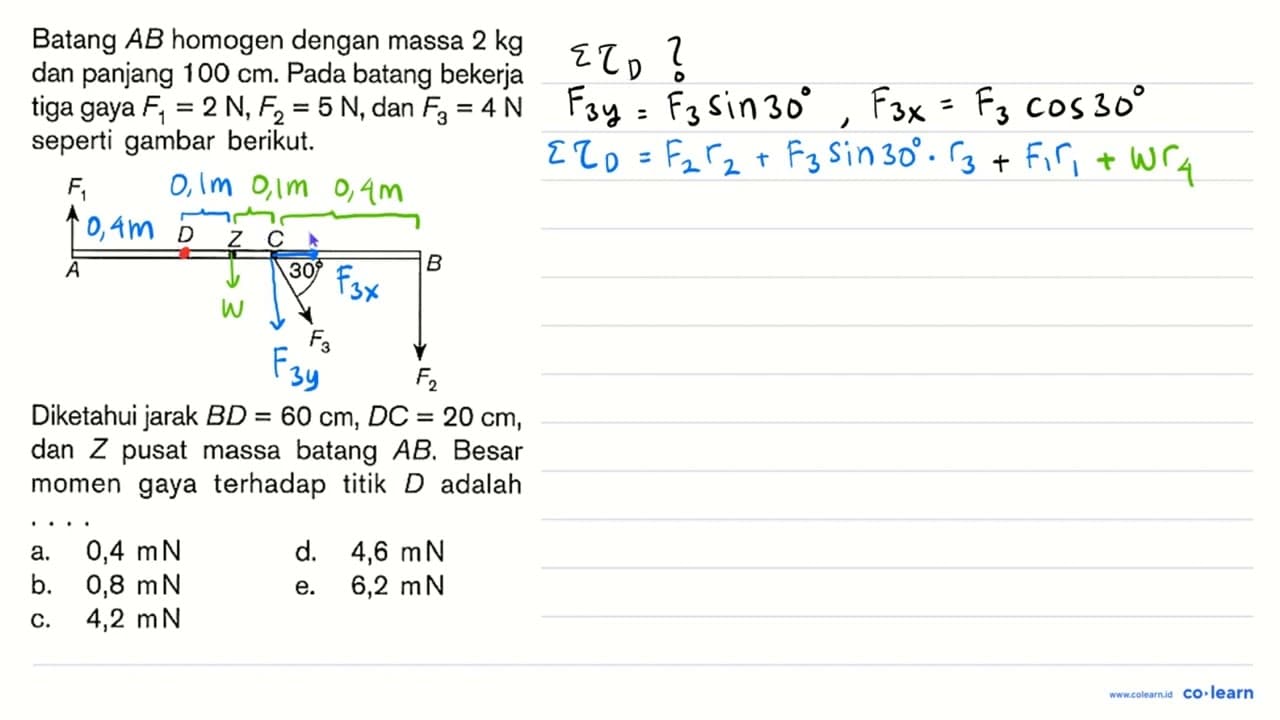 Batang AB homogen dengan massa 2 kg
dan panjang 100 cm. Pada batang bekerja
tiga gaya F₁ = 2 N, F₂ = 5 N, dan F₃ = 4 N
seperti gambar berikut.
F₁ 0,1m 0,1m 0,4m
0,4m D Z C
A 30° F₃ₓ B
W
F₃
F₃y F₂
Diketahui jarak BD = 60 cm, DC = 20 cm,
dan Z pusat massa batang AB. Besar
momen gaya terhadap titik D adalah
. . . .
a. 0,4 mN d. 4,6 mN
b. 0,8 mN e. 6,2 mN
c. 4,2 mN
Στ_D ?
F₃y = F₃ sin 30° , F₃ₓ = F₃ cos 30°
Στ_D = F₂r₂ + F₃ sin 30° . r₃ + F₁r₁ + Wr₄
www.colearn.id co·learn